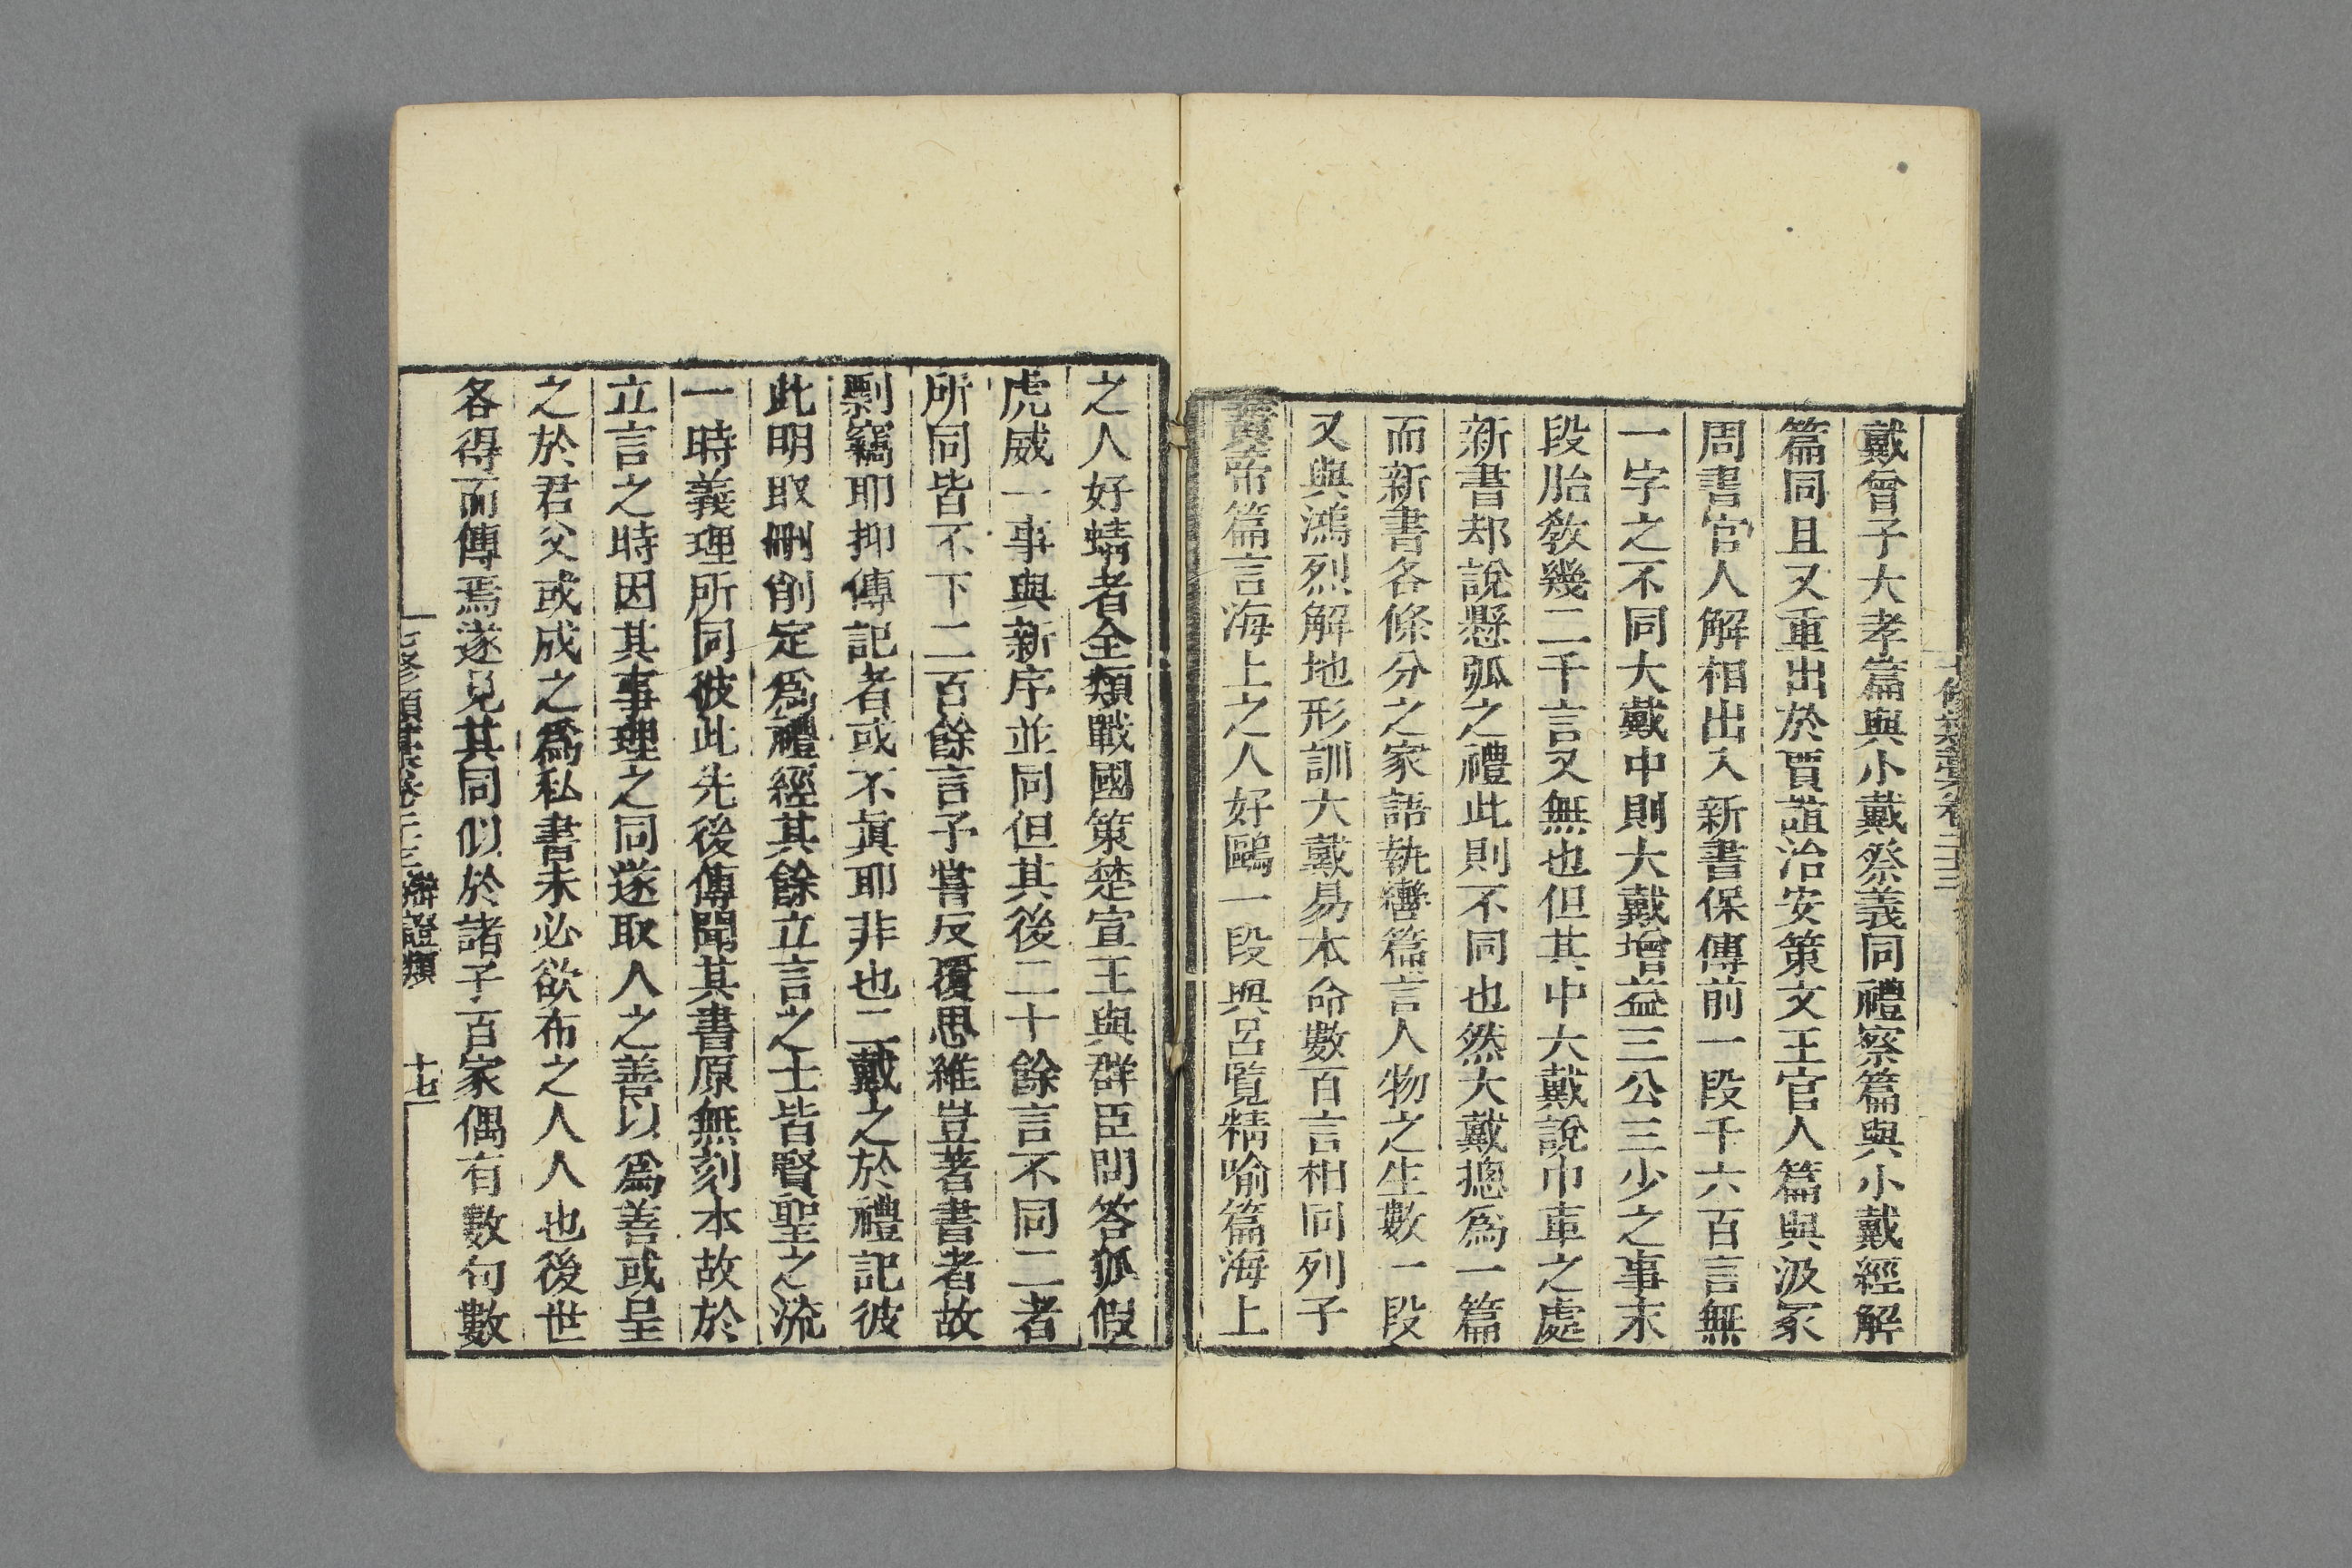 戴曾子大孝篇與小戴祭義同禮察篇與小戴經解
篇同且又重出於賈誼治安策文王官人篇與汲冢
周書官人解相出入新書保傅前一段千六百言無
一字之不同大戴中則大戴增益三公三少之事末
段胎教幾二千言又無也但其中大戴說巾車之處
新書却說懸弧之禮此則不同也然大戴摠爲一篇
而新書各條分之家語執轡篇言人物之生數一段
又與鴻烈解地形訓大戴易本命數百言相同列子
黃帝篇言海上之人好鷗一段與呂覽精喻篇海上
之人好蜻者全類戰國策楚宣王與群臣問答狐假
虎威一事與新序並同但其後二十餘言不同二者
所同皆不下二百餘言予嘗反覆思維豈著書者故
剽竊耶抑傳記者或不眞耶非也二戴之於禮記彼
此明取刪削定爲禮經其餘立言之士皆賢聖之流
一時義理所同彼此先後傳聞其書原無刻本故於
立言之時因其事理之同遂取人之善以爲善或呈
之於君父或成之爲私書未必欲布之人人也後世
各得而傳焉遂見其同似於諸子百家偶有數句數
七修類藁卷二十三 辯證類 十七